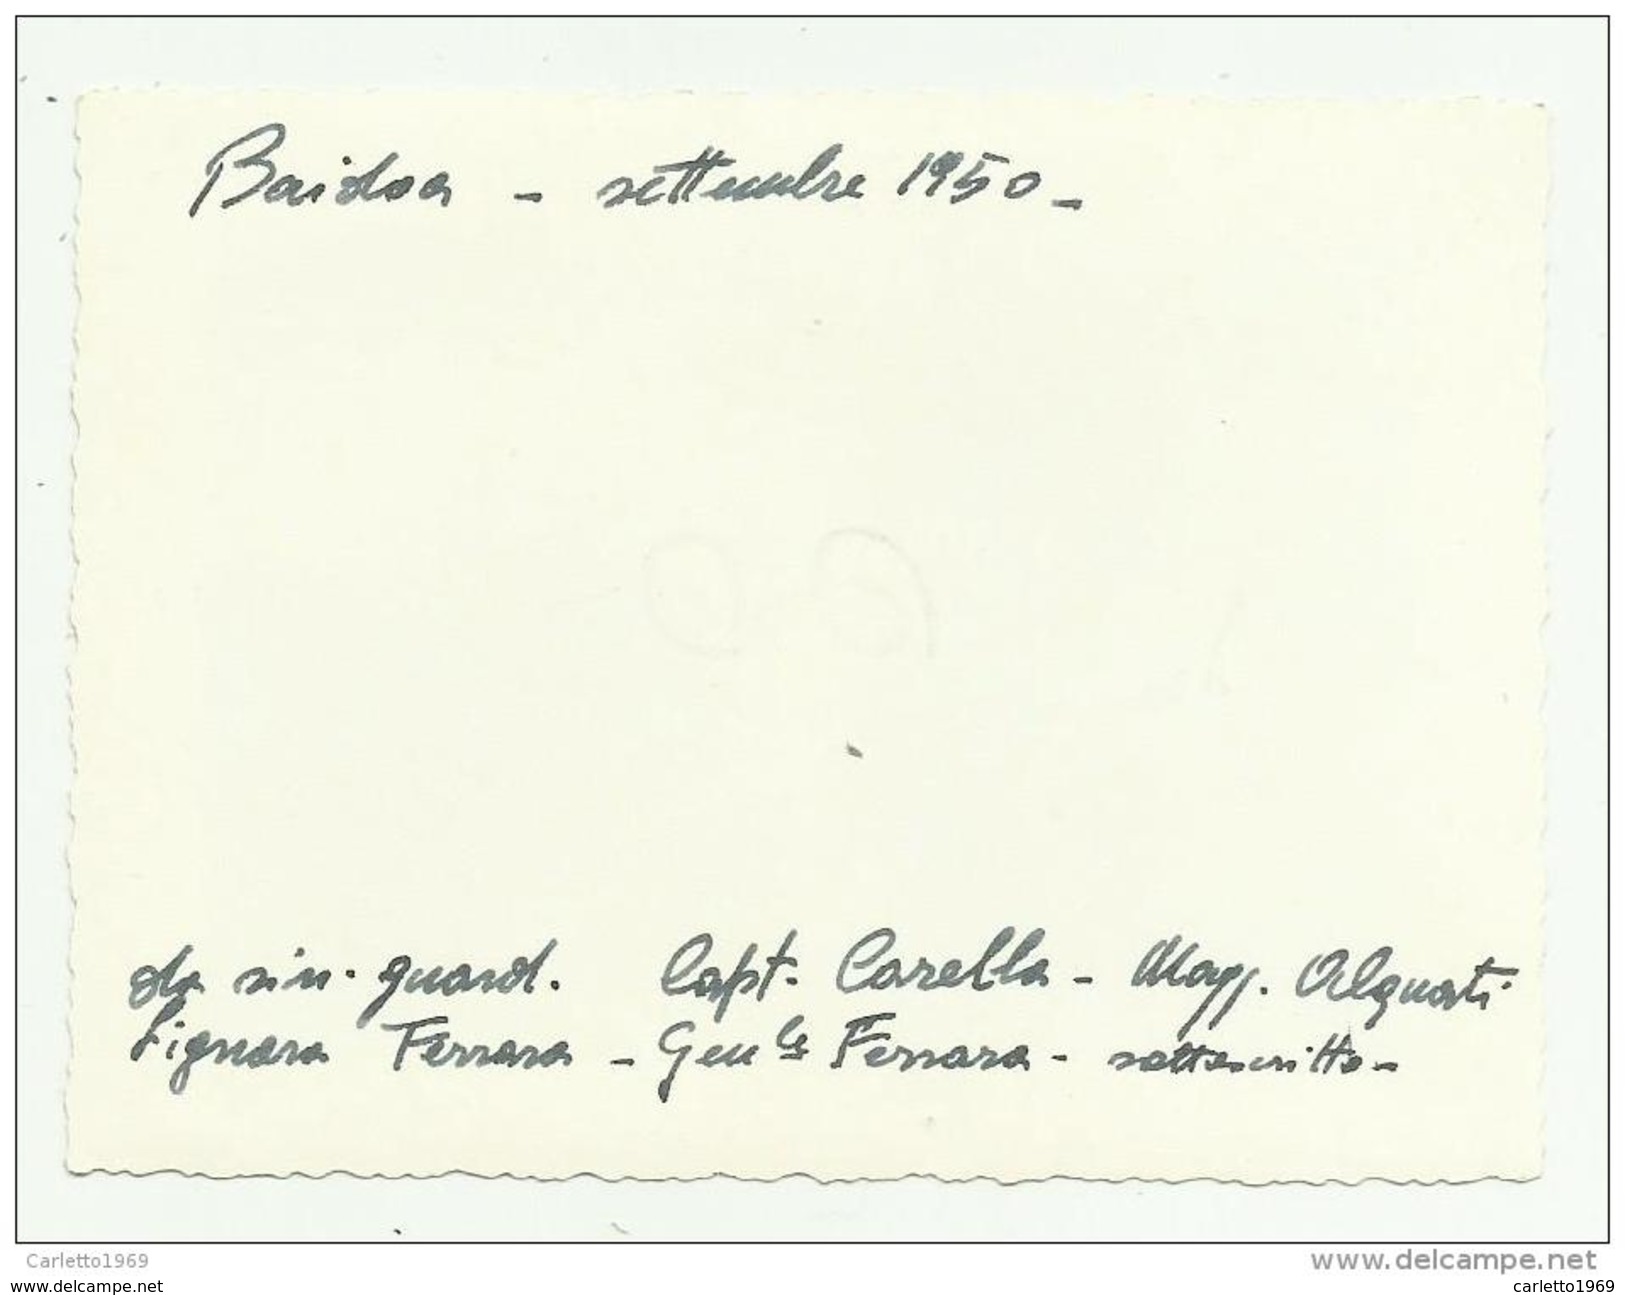 Baidoa - settembre 1950 -
da sin. guard. Capt. Carella - Magg. Alquati
Signora Ferrara - Gen.le Ferrara - sottoscritto -
Carletto1969
www.delcampe.net
www.delcampe.net
carletto1969